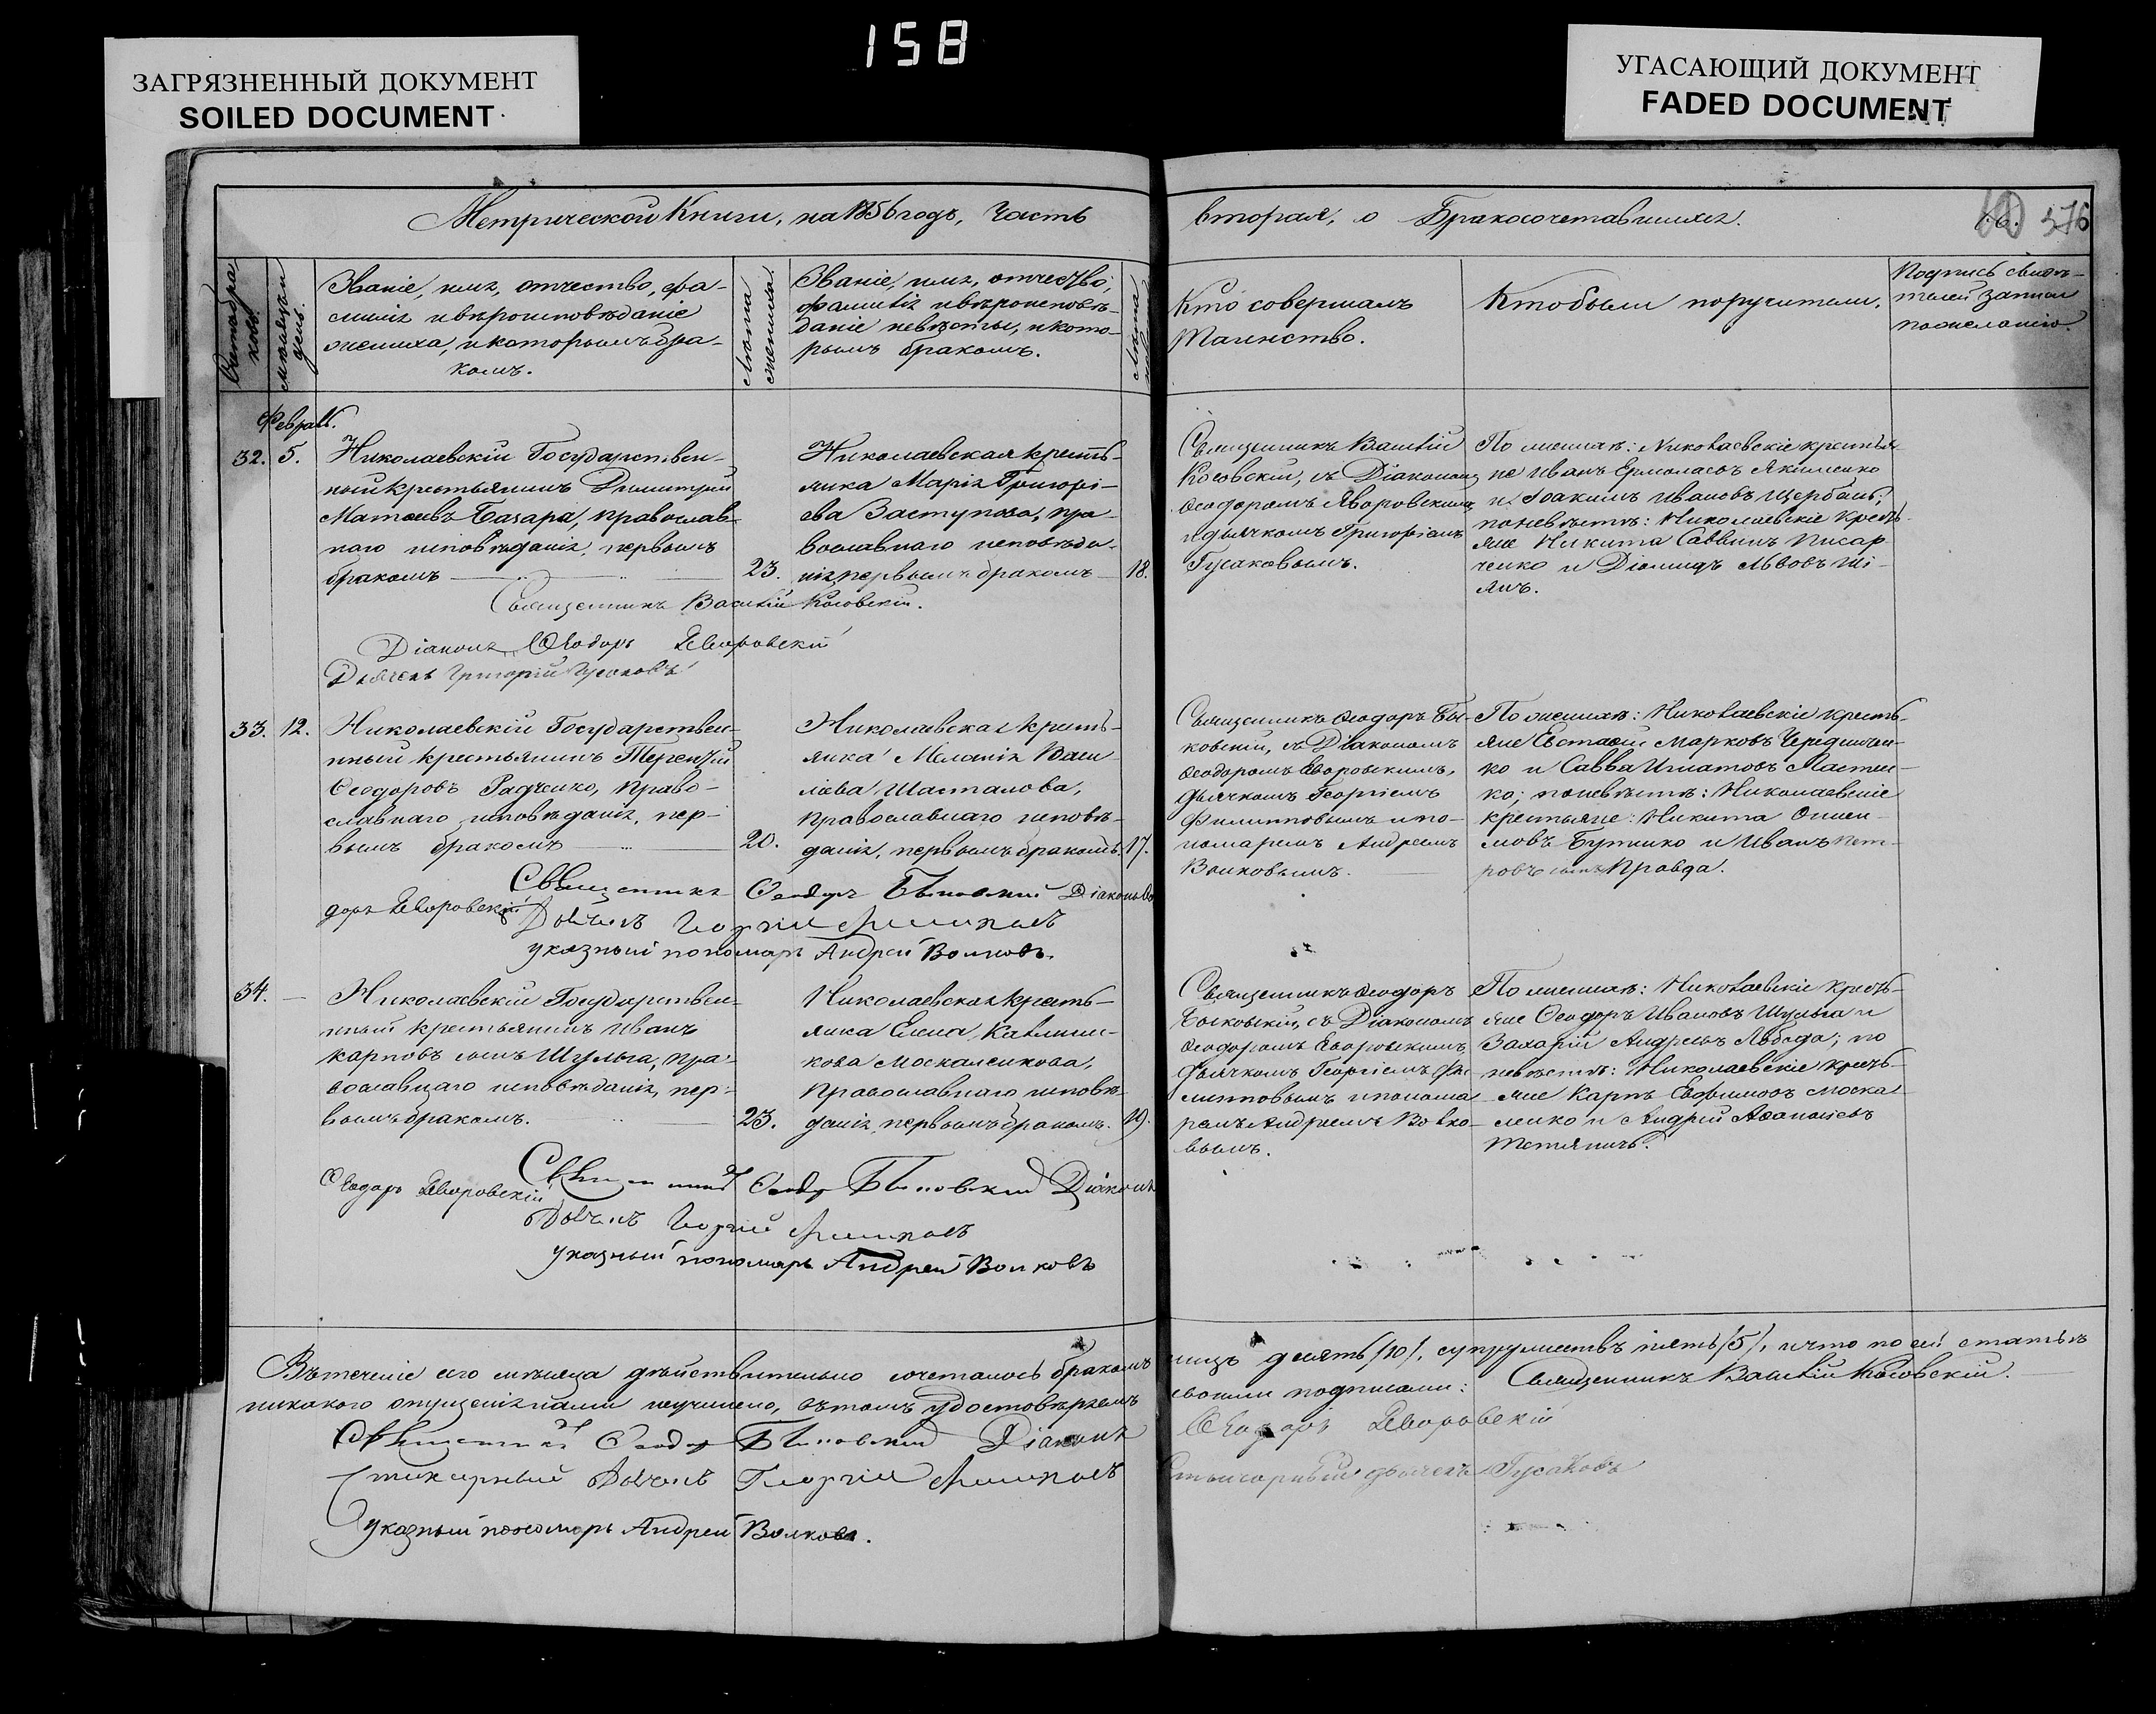 158
ЗАГРЯЗНЕННЫЙ ДОКУМЕНТ
SOILED DOCUMENT
УГАСАЮЩИЙ ДОКУМЕНТ
FADED DOCUMENT
Метрической Книги, на 1856 годъ, Часть
вторая, о Бракосочетавшихся.
376
Счетъ бра
ковъ.
мѣсяцъ и
день.
Званіе, имя, отчество, фа-
милія и вѣроисповѣданіе
жениха, и которымъ бра-
комъ.
Лѣта
жениха.
Званіе, имя, отчество,
фамилія и вѣроисповѣ-
даніе невѣсты, и кото-
рымъ бракомъ.
Лѣта
Кто совершалъ
Таинство.
Кто были поручители.
Подпись свидѣ-
телей записи
по желанію.
Февраль.
32. 5.
Николаевскій Государствен-
ный крестьянинъ Димитрій
Матѳеевъ Базара, православ-
наго исповѣданія, первымъ
бракомъ
23.
Николаевская кресть-
янка Марія Григорі-
ева Заступова, пра-
вославнаго исповѣда-
нія, первымъ бракомъ
18.
Священникъ Василій
Косовскій, съ Діакономъ
Ѳеодоромъ Яворовскимъ
и дьячкомъ Григоріемъ
Гусаковымъ.
По женихѣ: Николаевскіе крестья
не Иванъ Ермолаевъ Якименко
и Іоакимъ Ивановъ Щербань;
по невѣстѣ: Николаевскіе кресть-
яне Никита Саввинъ Писар
ченко и Діомидъ Львовъ Ші-
янъ.
Священникъ Василій Косовскій.
Діаконъ Ѳеодоръ Яворовскій
Дьячекъ Григорій Гусаковъ
33. 12.
Николаевскій Государствен-
нный крестьянинъ Терентій
Ѳеодоровъ Радченко, право-
славнаго исповѣданія, пер-
вымъ бракомъ
20.
Николаевская кресть-
янка Меланія Васи-
ліева Шасталова,
православнаго исповѣ-
данія, первымъ бракомъ.
17.
Священникъ Ѳеодоръ Бы-
ковскій, съ Діакономъ
Ѳеодоромъ Яворовскимъ,
дьячкомъ Георгіемъ
Филипповымъ и по-
номаремъ Андреемъ
Волковымъ.
По женихѣ: Николаевскіе кресть-
яне Евстафій Марковъ Чередничен-
ко и Савва Игнатовъ Мастен-
ко; по невѣстѣ: Николаевскіе
крестьяне: Никита Онисі-
мовъ Бутенко и Иванъ Пет-
ровъ сынъ Правда.
Священникъ Ѳеодоръ Быковскій Діаконъ Ѳео
доръ Яворовскій
Дьячекъ Георгій Филиповъ
указный пономарь Андрей Волковъ.
34.
Николаевскій Государствен-
нный крестьянинъ Иванъ
Карповъ сынъ Шульга, пра-
вославнаго исповѣданія, пер-
вымъ бракомъ.
23.
Николаевская кресть-
янка Елена Каллини-
кова Москаленкова,
православнаго исповѣ-
данія, первымъ бракомъ.
19.
Священникъ Ѳеодоръ
Быковскій, съ Діакономъ
Ѳеодоромъ Яворовскимъ,
дьячкомъ Георгіемъ Фи-
липповымъ и понома-
ремъ Андреемъ Волко-
вымъ.
По женихѣ: Николаевскіе кресть-
яне Ѳеодоръ Ивановъ Шульга и
Захарій Андреевъ Лобода; по
невѣстѣ: Николаевскіе кресть-
яне Карпъ Евфимовъ Моска
ленко и Андрей Аѳанасіевъ
Тетяничъ.
Священникъ Ѳеодоръ Быковскій Діаконъ
Ѳеодоръ Яворовскій
Дьячекъ Георгій Филиповъ
указный пономарь Андрей Волковъ
Въ теченіе сего мѣсяца дѣйствительно сочеталось бракомъ
лицъ десять /10/, супружествъ пять /5/, и что по сей статьѣ
никакого опущенія нами неучинено, въ томъ удостовѣряемъ
своими подписами: Священникъ Василій Косовскій.
Священникъ Ѳеодоръ Быковскій Діаконъ
Ѳеодоръ Яворовскій
Стихарный Дьячекъ Георгій Филиповъ
Стихарный дьячекъ Гусаковъ
Указный пономарь Андрей Волковъ.